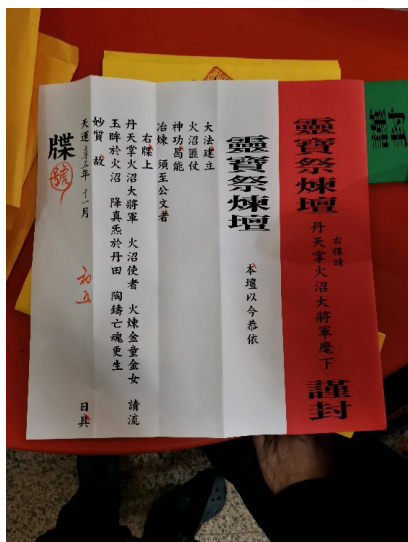 靈寶祭煉壇
右牒請
丹天掌火沼大將軍麾下
謹封
靈寶祭煉壇
本壇以今恭依
大法建立
火沼匪仗
神功曷能
冶煉 須至公文者
右牒上
丹天掌火沼大將軍 火沼使者 火煉金童金女 請流
玉眸於火沼 降真炁於丹田 陶鑄亡魂更生
妙質 故
天運 年十一月 初五 日具
牒
號
謹